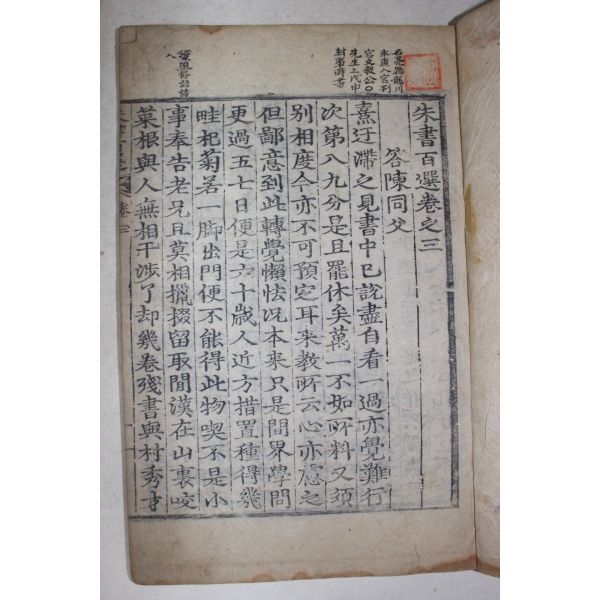 名亮號龍川
永康人官刑
官文毅公○
先生上戊申
封事時書
朱書百選卷之三
答陳同父
熹迂滯之見書中已說盡自看一過亦覺難行
次第八九分是且罷休矣萬一不如所料又須
別相度今亦不可預定耳來教所云心亦慮之
但鄙意到此轉覺懶怯况本来只是間界學問
更過五七日便是六十歲人近方措置種得幾
畦杞菊若一脚出門便不能得此物喫不是小
事奉告老兄且莫相攛掇留取閒漢在山裏咬
菜根與人無相干涉了却幾卷殘書與村秀才
卷三